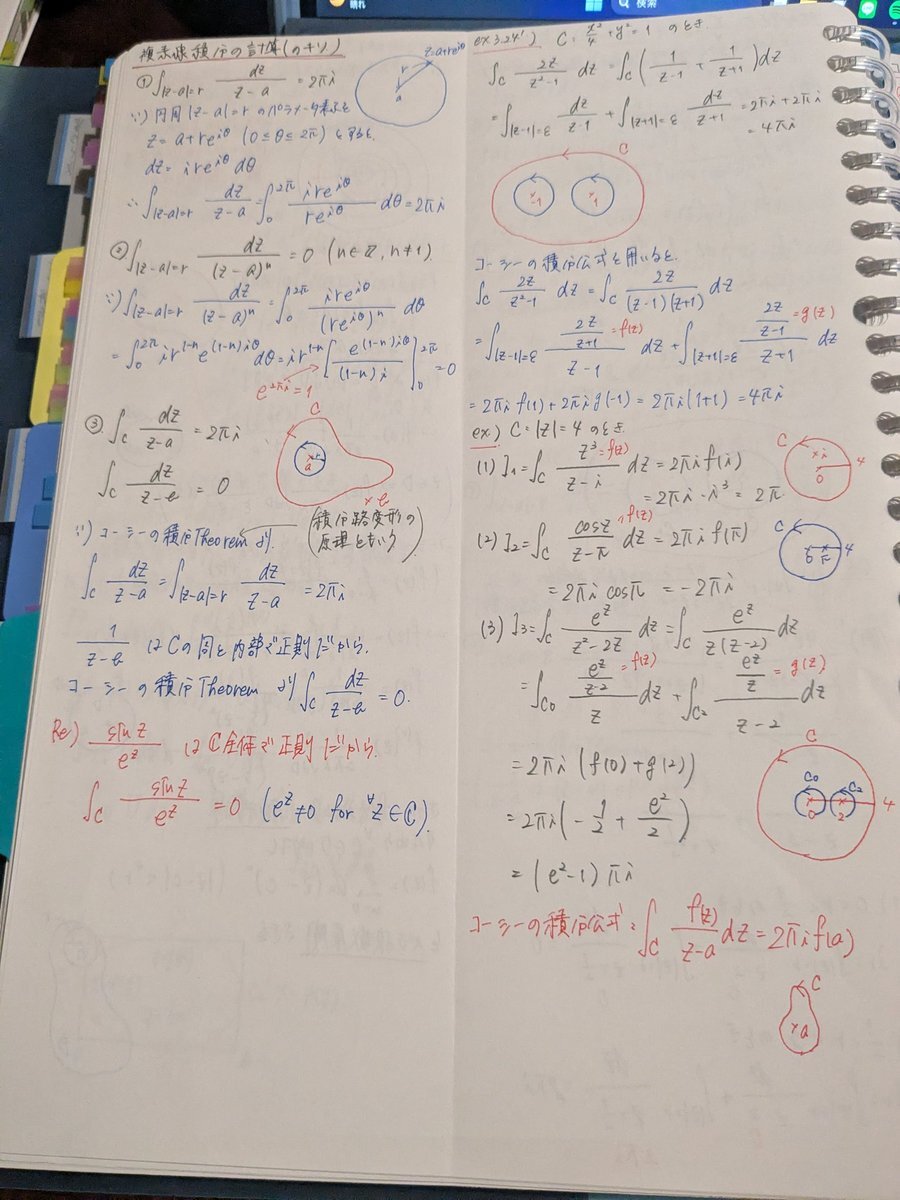 複素線積分の計算(のキソ)
① ∫_{|z-a|=r} dz/(z-a) = 2πi
z=a+re^{iθ}
r
a
∵) 円周 |z-a|=r のパラメータ表示を
z=a+re^{iθ} (0≤θ≤2π) とすると.
dz= ire^{iθ} dθ
∴ ∫_{|z-a|=r} dz/(z-a) = ∫_0^{2π} ire^{iθ}/re^{iθ} dθ = 2πi
② ∫_{|z-a|=r} dz/(z-a)^n = 0 (n∈ℤ, n≠1)
∵) ∫_{|z-a|=r} dz/(z-a)^n = ∫_0^{2π} ire^{iθ}/(re^{iθ})^n dθ
= ∫_0^{2π} ir^{1-n} e^{(1-n)iθ} dθ = ir^{1-n} [e^{(1-n)iθ}/(1-n)i]_0^{2π} = 0
e^{2πi}=1
③ ∫_C dz/(z-a) = 2πi
∫_C dz/(z-b) = 0
C
r
a
× b
∵) コーシーの積分Theoremより.
(積分路変形の
原理ともいう)
∫_C dz/(z-a) = ∫_{|z-a|=r} dz/(z-a) = 2πi
1/(z-b) はCの周と内部で正則だから.
コーシーの積分Theoremより ∫_C dz/(z-b) = 0.
Re) sin z/e^z は ℂ全体で正則だから.
∫_C sin z/e^z = 0 (e^z≠0 for ∀z∈ℂ).
ex 3.24') C= x²/4 + y² = 1 のとき
∫_C 2z/(z²-1) dz = ∫_C (1/(z-1) + 1/(z+1)) dz
= ∫_{|z-1|=ε} dz/(z-1) + ∫_{|z+1|=ε} dz/(z+1) = 2πi+2πi
= 4πi
C
-1
1
コーシーの積分公式を用いると.
∫_C 2z/(z²-1) dz = ∫_C 2z/((z-1)(z+1)) dz
= ∫_{|z-1|=ε} (2z/(z+1) =f(z))/(z-1) dz + ∫_{|z+1|=ε} (2z/(z-1) =g(z))/(z+1) dz
= 2πi f(1) + 2πi g(-1) = 2πi(1+1) = 4πi
ex) C=|z|=4 のとき
(1) I₁=∫_C z³ =f(z)/(z-i) dz = 2πi f(i)
= 2πi・i³ = 2π.
C
× i
0
4
(2) I₂=∫_C cosz =f(z)/(z-π) dz = 2πi f(π)
= 2πi cosπ = -2πi
C
0
π
4
(3) I₃=∫_C e^z/(z²-2z) dz = ∫_C e^z/(z(z-2)) dz
= ∫_{C0} (e^z/(z-2) =f(z))/z dz + ∫_{C2} (e^z/z =g(z))/(z-2) dz
= 2πi (f(0)+g(2))
= 2πi (-1/2 + e²/2)
= (e²-1)πi
C
C0
C2
0
2
4
コーシーの積分公式: ∫_C f(z)/(z-a) dz = 2πi f(a)
C
×a